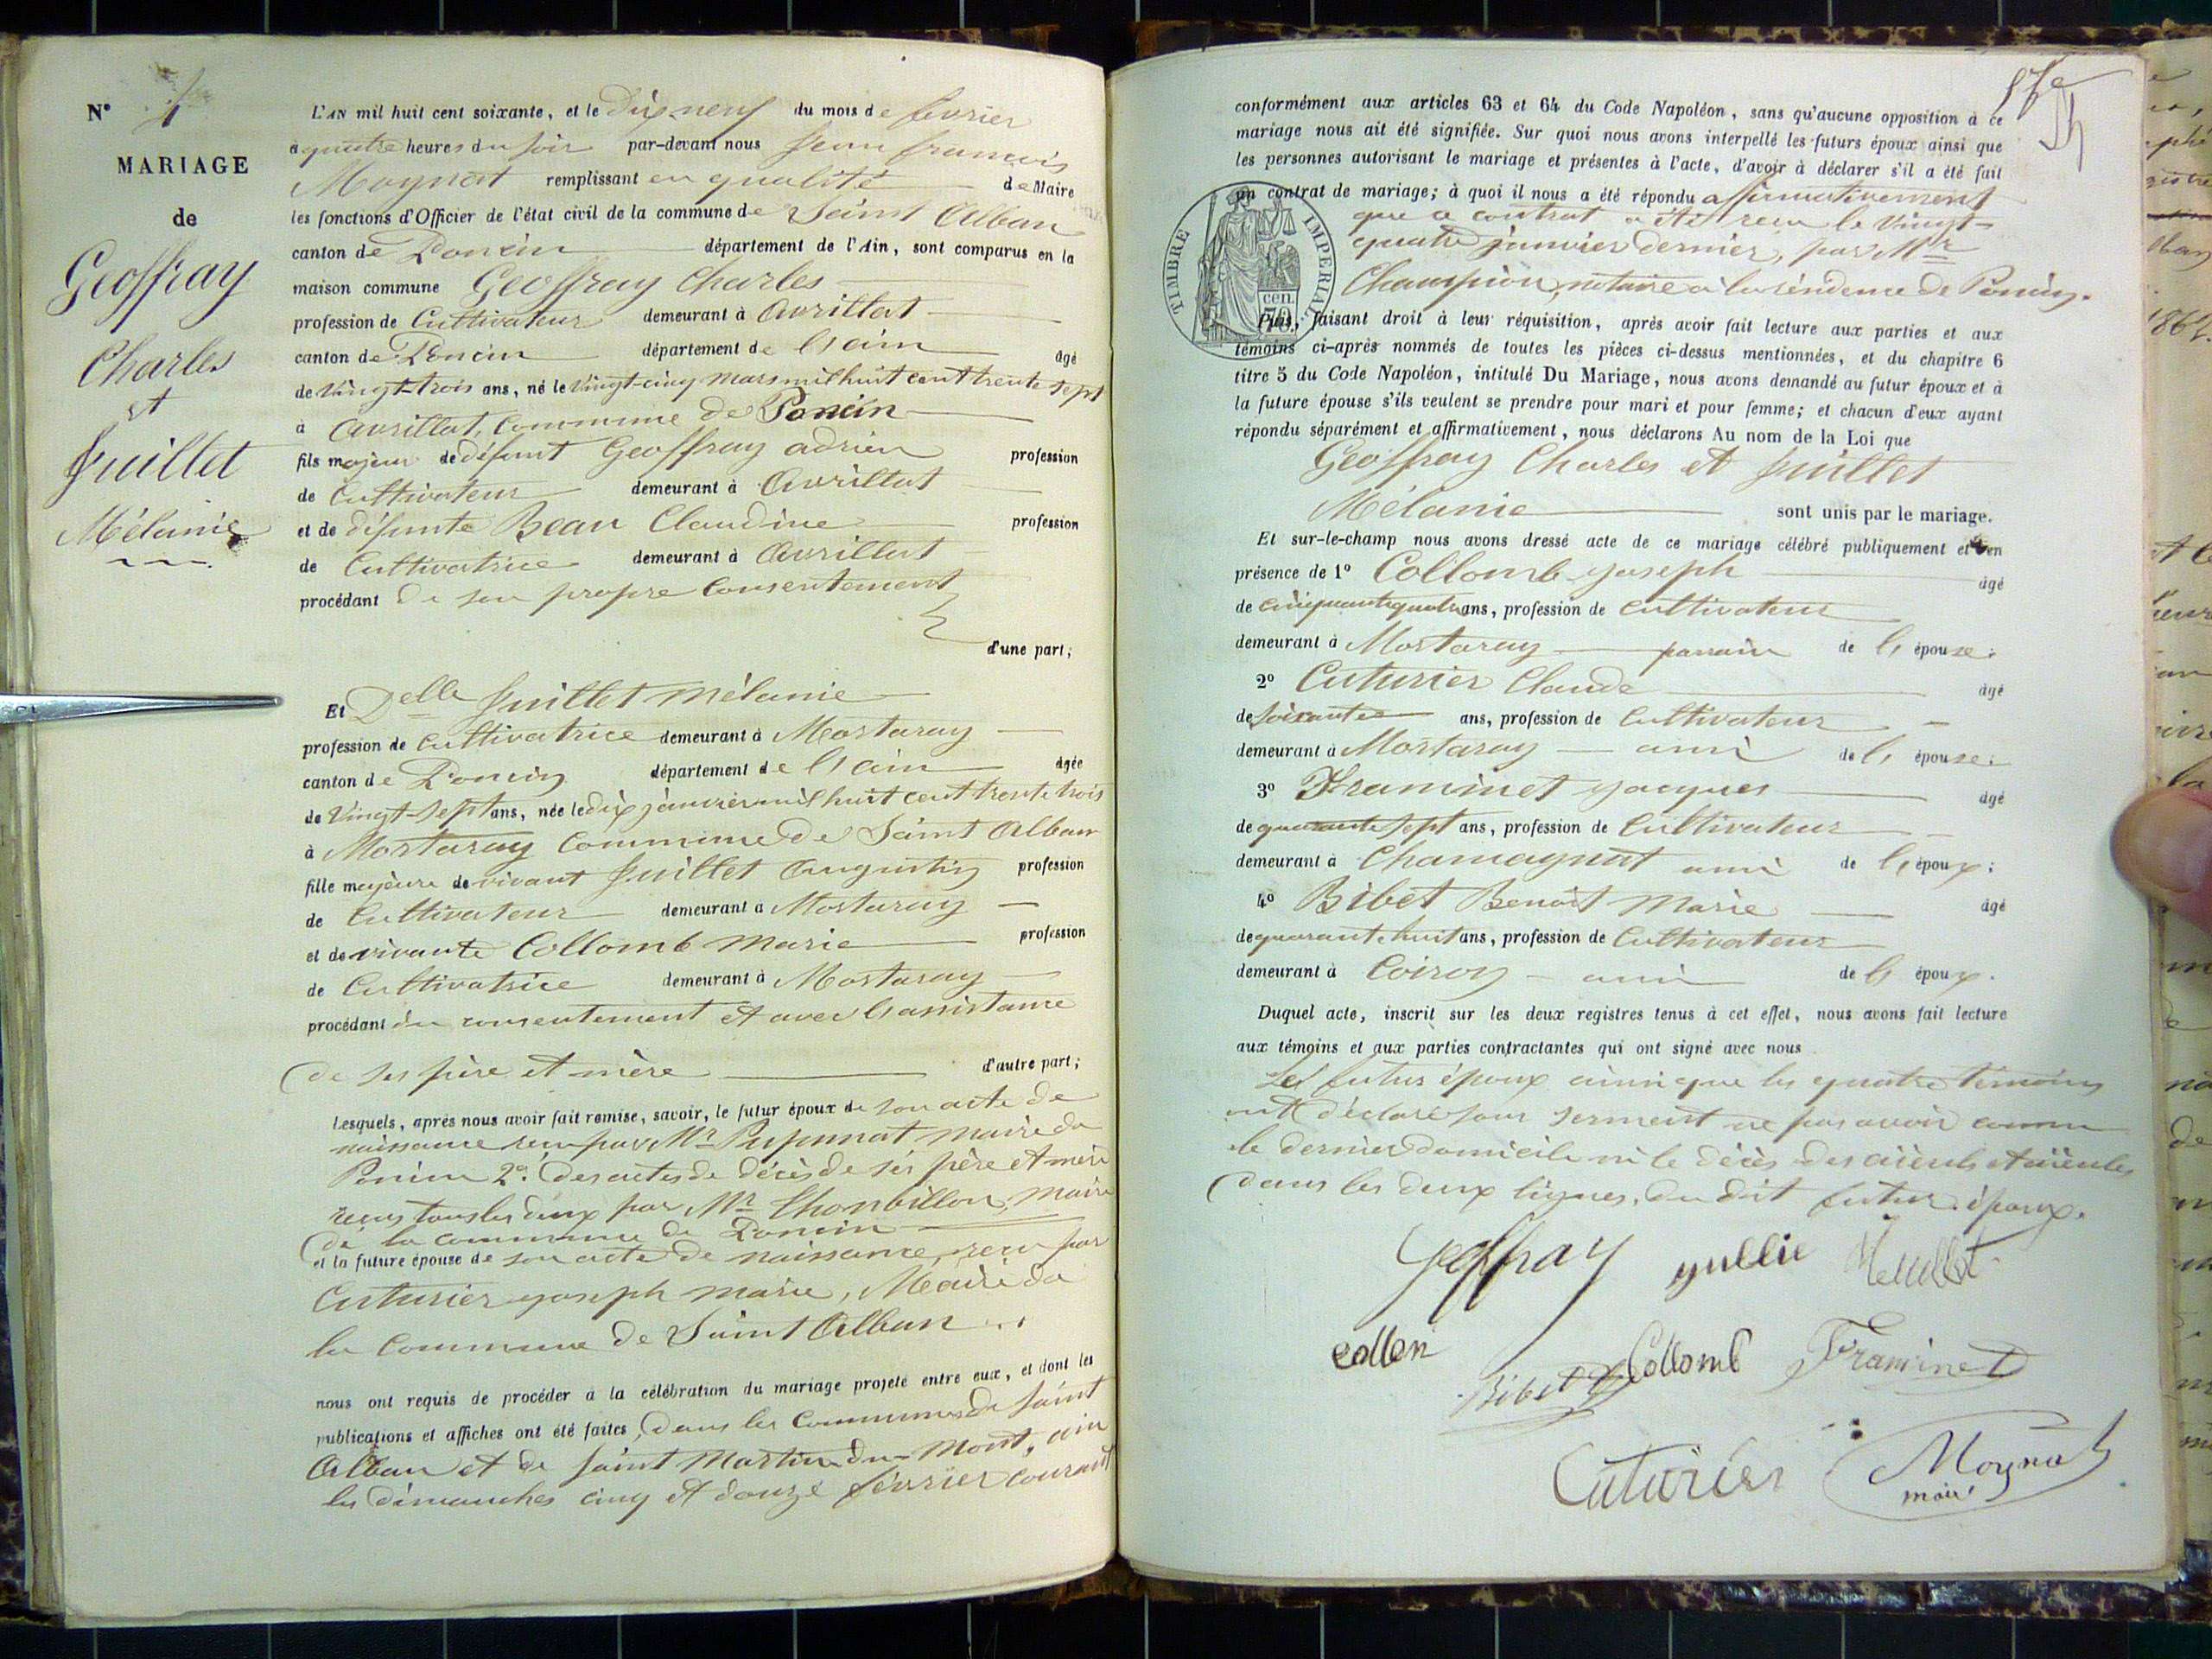 N° 1
MARIAGE
de
Geoffray
Charles
et
Juillet
Mélanie
L'AN mil huit cent soixante, et le Dix-neuf du mois de février
à quatre heures du soir par-devant nous Jean françois
Moynat remplissant en qualité de Maire
les fonctions d'Officier de l'état civil de la commune de Saint Alban
canton de Poncin département de l'Ain, sont comparus en la
maison commune Geoffray Charles
profession de Cultivateur demeurant à Avrillat
canton de Poncin département de l'ain âgé
de Vingt-trois ans, né le Vingt-cinq mars mil huit cent trente sept
à Avrillat, Commune de Poncin
fils majeur de défunt Geoffray adrien profession
de Cultivateur demeurant à Avrillat
et de défunte Beau Claudine profession
de Cultivatrice demeurant à Avrillat
procédant de son propre Consentement
d'une part;
Et Delle Juillet mélanie
profession de Cultivatrice demeurant à Mortaray
canton de Poncin département de l'ain âgée
de Vingt-sept ans, née le dix janvier mil huit cent trente trois
à Mortaray Commune de Saint Alban
fille majeure de vivant Juillet Augustin profession
de Cultivateur demeurant à Mortaray
et de vivante Collomb Marie profession
de Cultivatrice demeurant à Mortaray
procédant du consentement et avec l'assistance
de ses père et mère d'autre part;
Lesquels, après nous avoir fait remise, savoir, le futur époux de son acte de
naissance reçu par Mr maire de
Poncin 2° Des actes de décès de ses père et mère
reçus tous les deux par Mr maire
de la commune de Poncin
et la future épouse de son acte de naissance, reçu par
Cuturier joseph marie, Maire de
la Commune de Saint Alban
nous ont requis de procéder à la célébration du mariage projeté entre eux, et dont les
publications et affiches ont été faites, dans les Communes de Saint
Alban et de Saint Martin-du-Mont, ain
les dimanches cinq et douze février courant
conformément aux articles 63 et 64 du Code Napoléon, sans qu'aucune opposition à ce
mariage nous ait été signifiée. Sur quoi nous avons interpellé les futurs époux ainsi que
les personnes autorisant le mariage et présentes à l'acte, d'avoir à déclarer s'il a été fait
un contrat de mariage; à quoi il nous a été répondu affirmativement
que ce contrat a été reçu le vingt-
quatre janvier dernier, par Mtre
Champion, notaire à la résidence de Poncin.
TIMBRE IMPERIAL
70 cen.
Puis, faisant droit à leur réquisition, après avoir fait lecture aux parties et aux
témoins ci-après nommés de toutes les pièces ci-dessus mentionnées, et du chapitre 6
titre 5 du Code Napoléon, intitulé Du Mariage, nous avons demandé au futur époux et à
la future épouse s'ils veulent se prendre pour mari et pour femme; et chacun d'eux ayant
répondu séparément et affirmativement, nous déclarons Au nom de la Loi que
Geoffray Charles et Juillet
Mélanie sont unis par le mariage.
Et sur-le-champ nous avons dressé acte de ce mariage célébré publiquement et en
présence de 1° Collomb joseph âgé
de cinquante quatre ans, profession de Cultivateur
demeurant à Mortaray parrain de l'épouse;
2° Cuturier Claude âgé
de soixante ans, profession de Cultivateur
demeurant à Mortaray ami de l'épouse;
3° Framinet jacques âgé
de quarante sept ans, profession de Cultivateur
demeurant à Chamagnat ami de l'époux;
4° Bibet Benoit Marie âgé
de quarante huit ans, profession de Cultivateur
demeurant à Coiron ami de l'époux.
Duquel acte, inscrit sur les deux registres tenus à cet effet, nous avons fait lecture
aux témoins et aux parties contractantes qui ont signé avec nous
Les futurs époux ainsi que les quatre témoins
ont déclaré sous serment ne pas avoir connu
le dernier domicile ni le décès des aïeuls et aïeules
dans les deux lignes, du dit futur époux.
Geoffray
collon
Bibet Collomb Framinet
Cuturier Moynat
maire